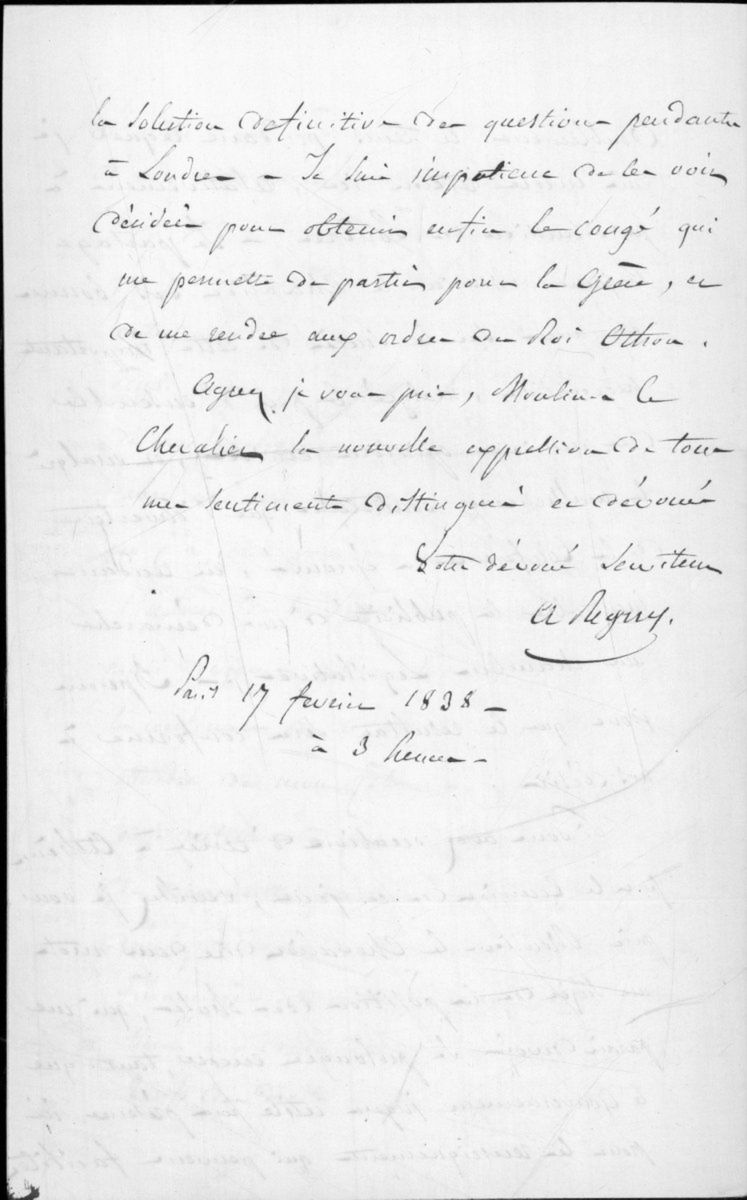 la solution definitive des questions pendantes
à Londres – Je suis impatient de les voir
décidées pour obtenir enfin le congé qui
me permette de partir pour la Grèce, et
de me rendre aux ordres du Roi Othon.
Agréez, je vous prie, Monsieur le
Chevalier la nouvelle expression de tous
mes sentiments distingués et dévoués
Votre dévoué Serviteur
A Regny.
Paris 17 fevrier 1838 –
à 3 heures –